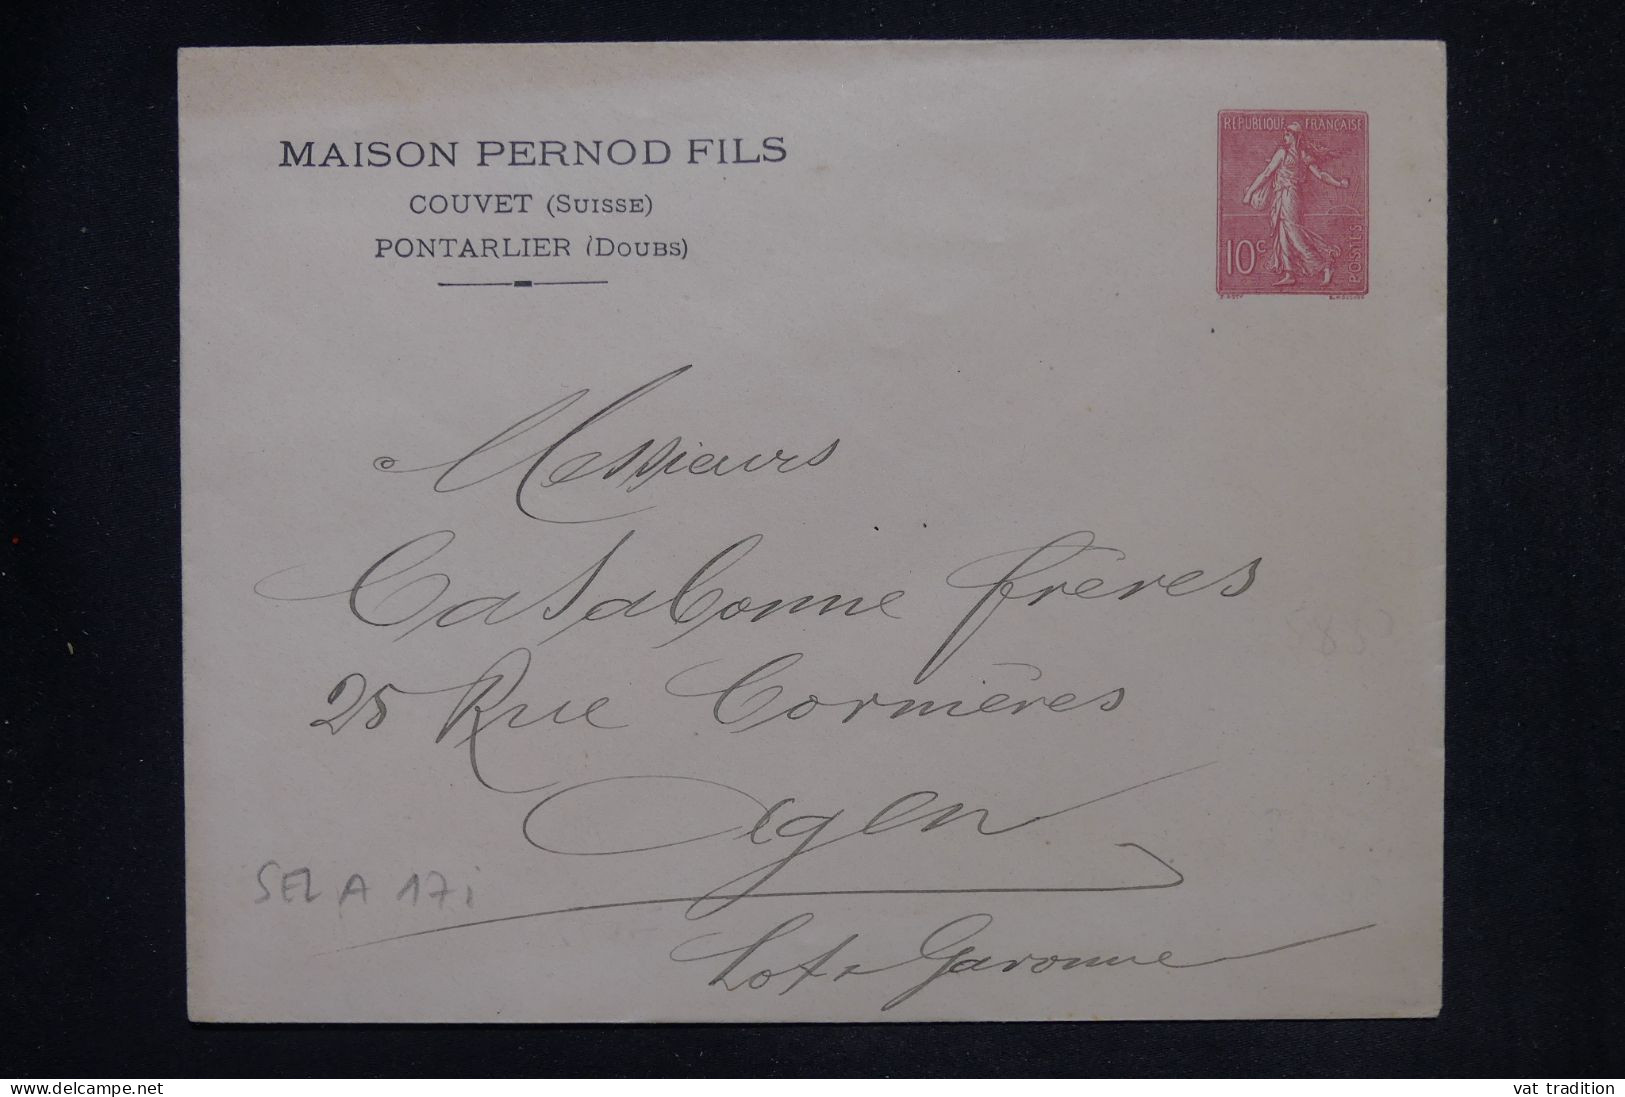 MAISON PERNOD FILS
COUVET (SUISSE)
PONTARLIER (DOUBS)
REPUBLIQUE FRANÇAISE
10c
POSTES
Messieurs
Casabonne frères
25 Rue Cornières
Agen
Lot & Garonne
SEL A 17i
delcampe.net
vat tradition